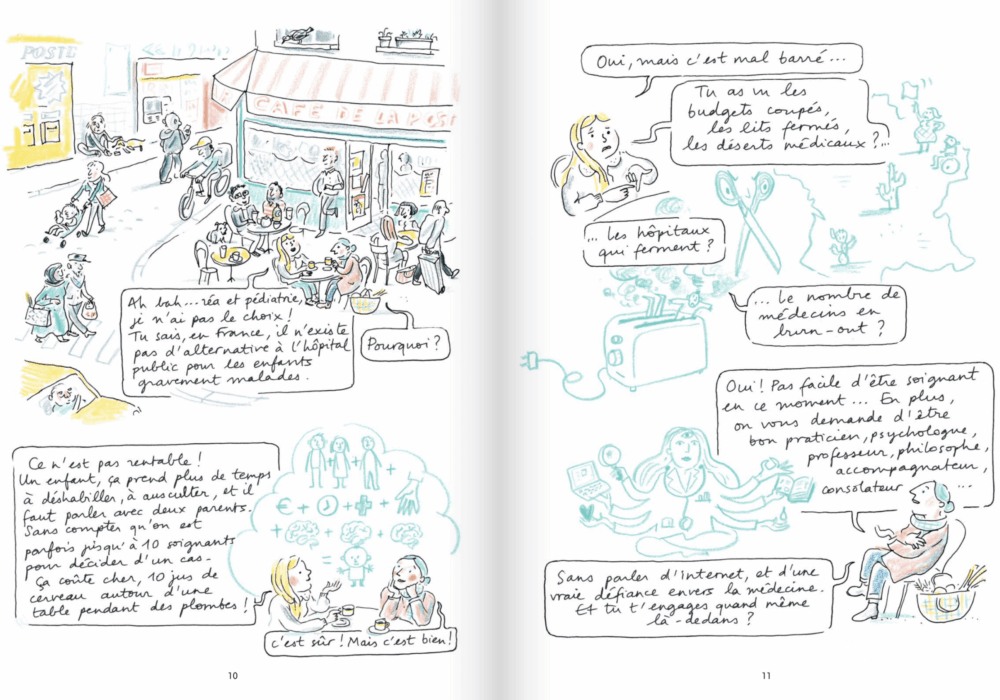 POSTE
CAFÉ DE LA POST
Ah bah... réa et pédiatrie,
je n'ai pas le choix !
Tu sais, en France, il n'existe
pas d'alternative à l'hôpital
public pour les enfants
gravement malades.
Pourquoi ?
Ce n'est pas rentable !
Un enfant, ça prend plus de temps
à déshabiller, à ausculter, et il
faut parler avec deux parents.
Sans compter qu'on est
parfois jusqu'à 10 soignants
pour décider d'un cas.
Ça coûte cher, 10 jus de
cerveau autour d'une
table pendant des plombes !
+ +
€ + + +
+ +
=
c'est sûr ! Mais c'est bien !
10
Oui, mais c'est mal barré...
Tu as vu les
budgets coupés,
les lits fermés,
les déserts médicaux ?...
... Les hôpitaux
qui ferment ?
... Le nombre de
médecins en
burn-out ?
Oui ! Pas facile d'être soignant
en ce moment... En plus,
on vous demande d'être
bon praticien, psychologue,
professeur, philosophe,
accompagnateur,
consolateur ...
Sans parler d'internet, et d'une
vraie défiance envers la médecine.
Et tu t'engages quand même
là-dedans ?
11